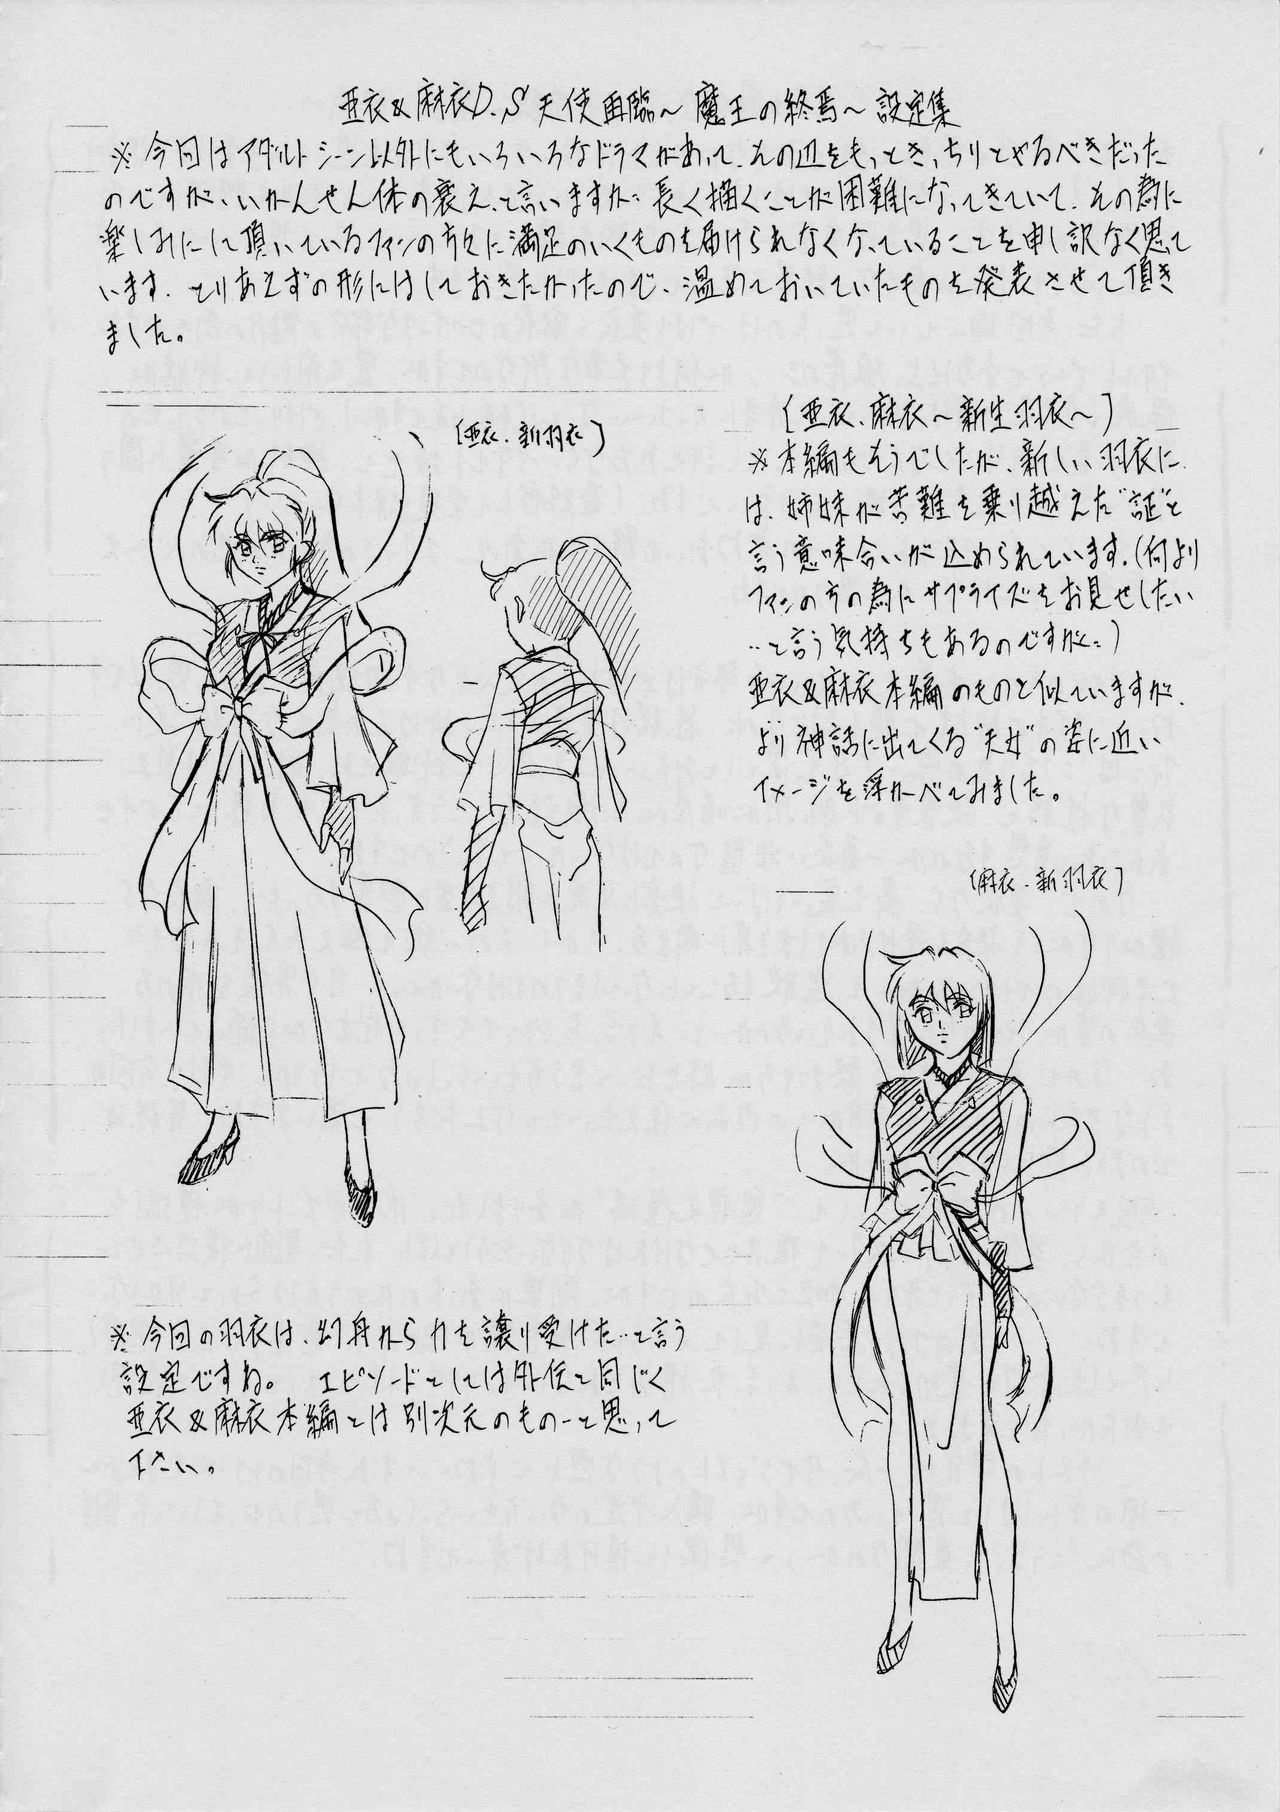 亜衣&麻衣D.S天使再臨～魔王の終焉～設定集
※今回はアダルトシーン以外にもいろいろなドラマがあって、その辺をもっときっちりとやるべきだった
のですが、いかんせん体の衰え、と言いますか…長く描くことが困難になってきていて、その為に
楽しみにして頂いているファンの方々に満足のいくものを届けられなくなっていることを申し訳なく思って
います。とりあえずの形にはしておきたかったので、温めておいていたものを発表させて頂き
ました。
(亜衣・新羽衣)
(亜衣、麻衣～新生羽衣～)
※本編もそうでしたが、新しい羽衣に
は、姉妹が苦難を乗り越えた"証"と
言う意味合いが込められています。(何より
ファンの方の為にサプライズをお見せしたい
…と言う気持ちもあるのですが…)
亜衣&麻衣本編のものと似ていますが、
より神話に出てくる"天女"の姿に近い
イメージを浮かべてみました。
(麻衣・新羽衣)
※今回の羽衣は、幻舟から力を譲り受けた…と言う
設定ですね。 エピソードとしては外伝と同じく
亜衣&麻衣本編とは別次元のもの…と思って
下さい。